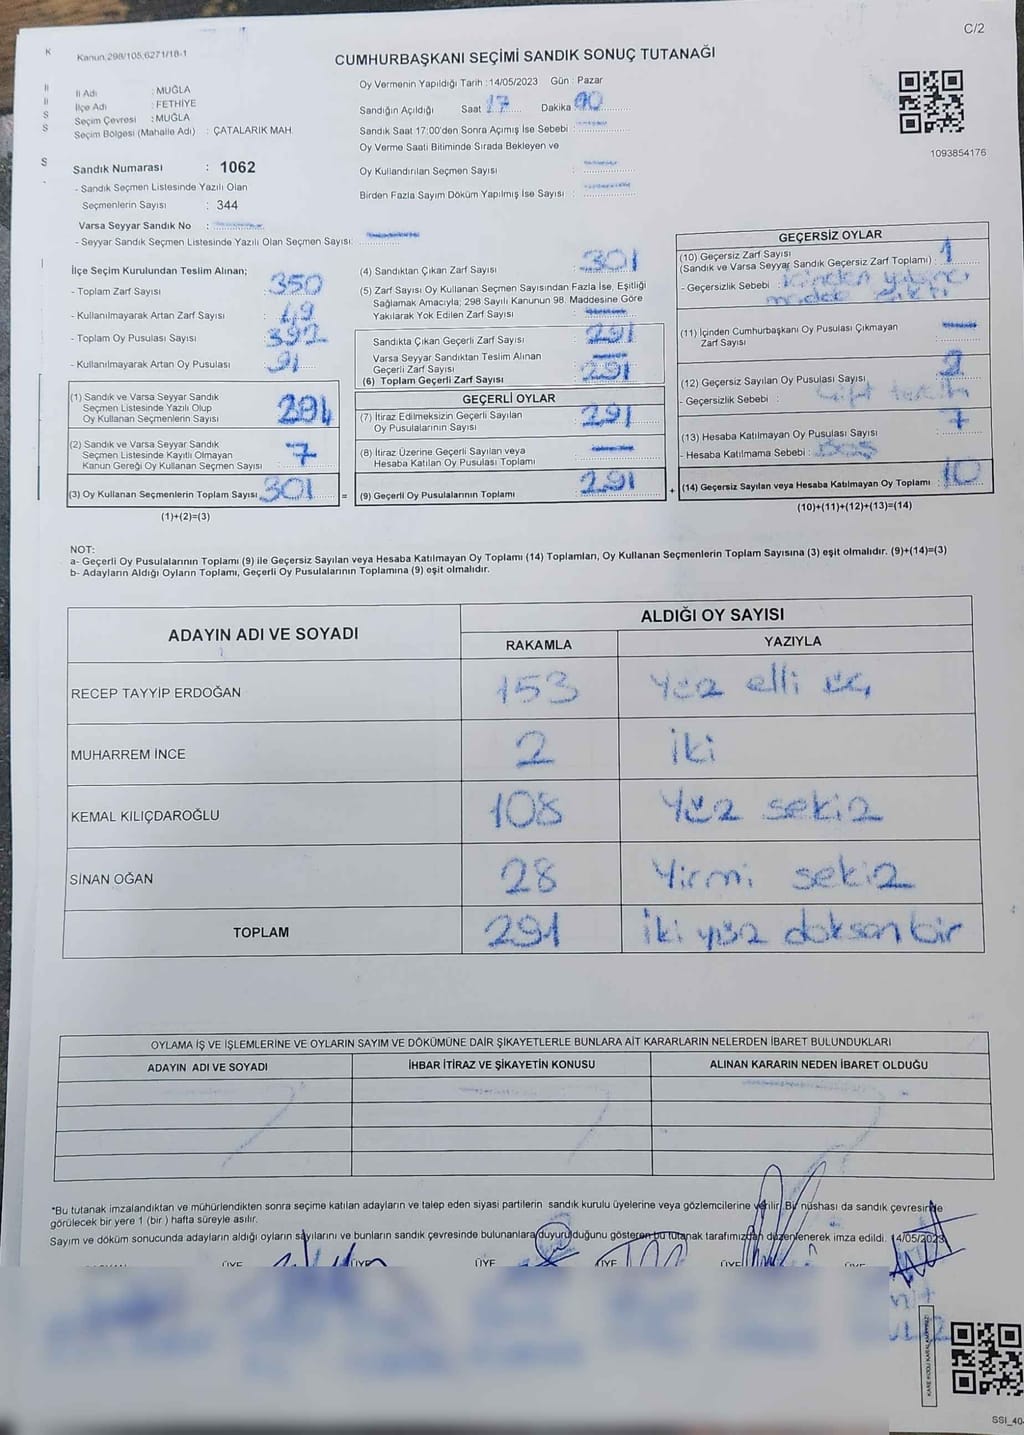 C/2
K Kanun 298/105,6271/18-1
CUMHURBAŞKANI SEÇİMİ SANDIK SONUÇ TUTANAĞI
İl Adı : MUĞLA
İlçe Adı : FETHİYE
Seçim Çevresi : MUĞLA
Seçim Bölgesi (Mahalle Adı) : ÇATALARIK MAH.
Sandık Numarası : 1062
- Sandık Seçmen Listesinde Yazılı Olan
Seçmenlerin Sayısı : 344
Varsa Seyyar Sandık No :
- Seyyar Sandık Seçmen Listesinde Yazılı Olan Seçmen Sayısı:
Oy Vermenin Yapıldığı Tarih : 14/05/2023 Gün : Pazar
Sandığın Açıldığı Saat 17 Dakika 00
Sandık Saat 17:00'den Sonra Açımış İse Sebebi :
Oy Verme Saati Bitiminde Sırada Bekleyen ve
Oy Kullandırılan Seçmen Sayısı :
Birden Fazla Sayım Döküm Yapılmış İse Sayısı :
1093854176
İlçe Seçim Kurulundan Teslim Alınan;
- Toplam Zarf Sayısı : 350
- Kullanılmayarak Artan Zarf Sayısı : 49
- Toplam Oy Pusulası Sayısı : 392
- Kullanılmayarak Artan Oy Pusulası : 91
(1) Sandık ve Varsa Seyyar Sandık
Seçmen Listesinde Yazılı Olup
Oy Kullanan Seçmenlerin Sayısı : 294
(2) Sandık ve Varsa Seyyar Sandık
Seçmen Listesinde Kayıtlı Olmayan
Kanun Gereği Oy Kullanan Seçmen Sayısı : 7
(3) Oy Kullanan Seçmenlerin Toplam Sayısı : 301 =
(1)+(2)=(3)
(4) Sandıktan Çıkan Zarf Sayısı : 301
(5) Zarf Sayısı Oy Kullanan Seçmen Sayısından Fazla İse, Eşitliği
Sağlamak Amacıyla; 298 Sayılı Kanunun 98. Maddesine Göre
Yakılarak Yok Edilen Zarf Sayısı :
Sandıkta Çıkan Geçerli Zarf Sayısı : 291
Varsa Seyyar Sandıktan Teslim Alınan
Geçerli Zarf Sayısı :
(6) Toplam Geçerli Zarf Sayısı : 291
GEÇERLİ OYLAR
(7) İtiraz Edilmeksizin Geçerli Sayılan
Oy Pusulalarının Sayısı : 291
(8) İtiraz Üzerine Geçerli Sayılan veya
Hesaba Katılan Oy Pusulası Toplamı :
(9) Geçerli Oy Pusulalarının Toplamı : 291 +
GEÇERSİZ OYLAR
(10) Geçersiz Zarf Sayısı
(Sandık ve Varsa Seyyar Sandık Geçersiz Zarf Toplamı) : 1
- Geçersizlik Sebebi : içinden yabancı
madde çıktı
(11) İçinden Cumhurbaşkanı Oy Pusulası Çıkmayan
Zarf Sayısı :
(12) Geçersiz Sayılan Oy Pusulası Sayısı : 2
- Geçersizlik Sebebi : çift tercih
(13) Hesaba Katılmayan Oy Pusulası Sayısı : 7
- Hesaba Katılmama Sebebi : Boş
(14) Geçersiz Sayılan veya Hesaba Katılmayan Oy Toplamı : 10
(10)+(11)+(12)+(13)=(14)
NOT:
a- Geçerli Oy Pusulalarının Toplamı (9) ile Geçersiz Sayılan veya Hesaba Katılmayan Oy Toplamı (14) Toplamları, Oy Kullanan Seçmenlerin Toplam Sayısına (3) eşit olmalıdır. (9)+(14)=(3)
b- Adayların Aldığı Oyların Toplamı, Geçerli Oy Pusulalarının Toplamına (9) eşit olmalıdır.
ADAYIN ADI VE SOYADI ALDIĞI OY SAYISI
RAKAMLA YAZIYLA
RECEP TAYYİP ERDOĞAN 153 Yüz elli üç
MUHARREM İNCE 2 İki
KEMAL KILIÇDAROĞLU 108 Yüz sekiz
SİNAN OĞAN 28 Yirmi sekiz
TOPLAM 291 İki yüz doksan bir
OYLAMA İŞ VE İŞLEMLERİNE VE OYLARIN SAYIM VE DÖKÜMÜNE DAİR ŞİKAYETLERLE BUNLARA AİT KARARLARIN NELERDEN İBARET BULUNDUKLARI
ADAYIN ADI VE SOYADI İHBAR İTİRAZ VE ŞİKAYETİN KONUSU ALINAN KARARIN NEDEN İBARET OLDUĞU
*Bu tutanak imzalandıktan ve mühürlendikten sonra seçime katılan adayların ve talep eden siyasi partilerin sandık kurulu üyelerine veya gözlemcilerine verilir. Bir nüshası da sandık çevresinde
görülecek bir yere 1 (bir ) hafta süreyle asılır.
Sayım ve döküm sonucunda adayların aldığı oyların sayılarını ve bunların sandık çevresinde bulunanlara duyurulduğunu gösteren bu tutanak tarafımızdan düzenlenerek imza edildi. 14/05/2023
ÜYE ÜYE ÜYE ÜYE ÜYE
SSI_40